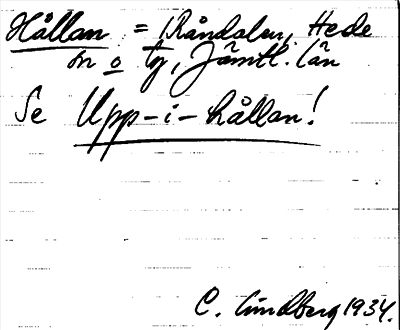 Hållan = Råndalen, Hede
sn o tg, Jämtl. län
Se Upp-i-hållan!
C. Lindberg 1934.